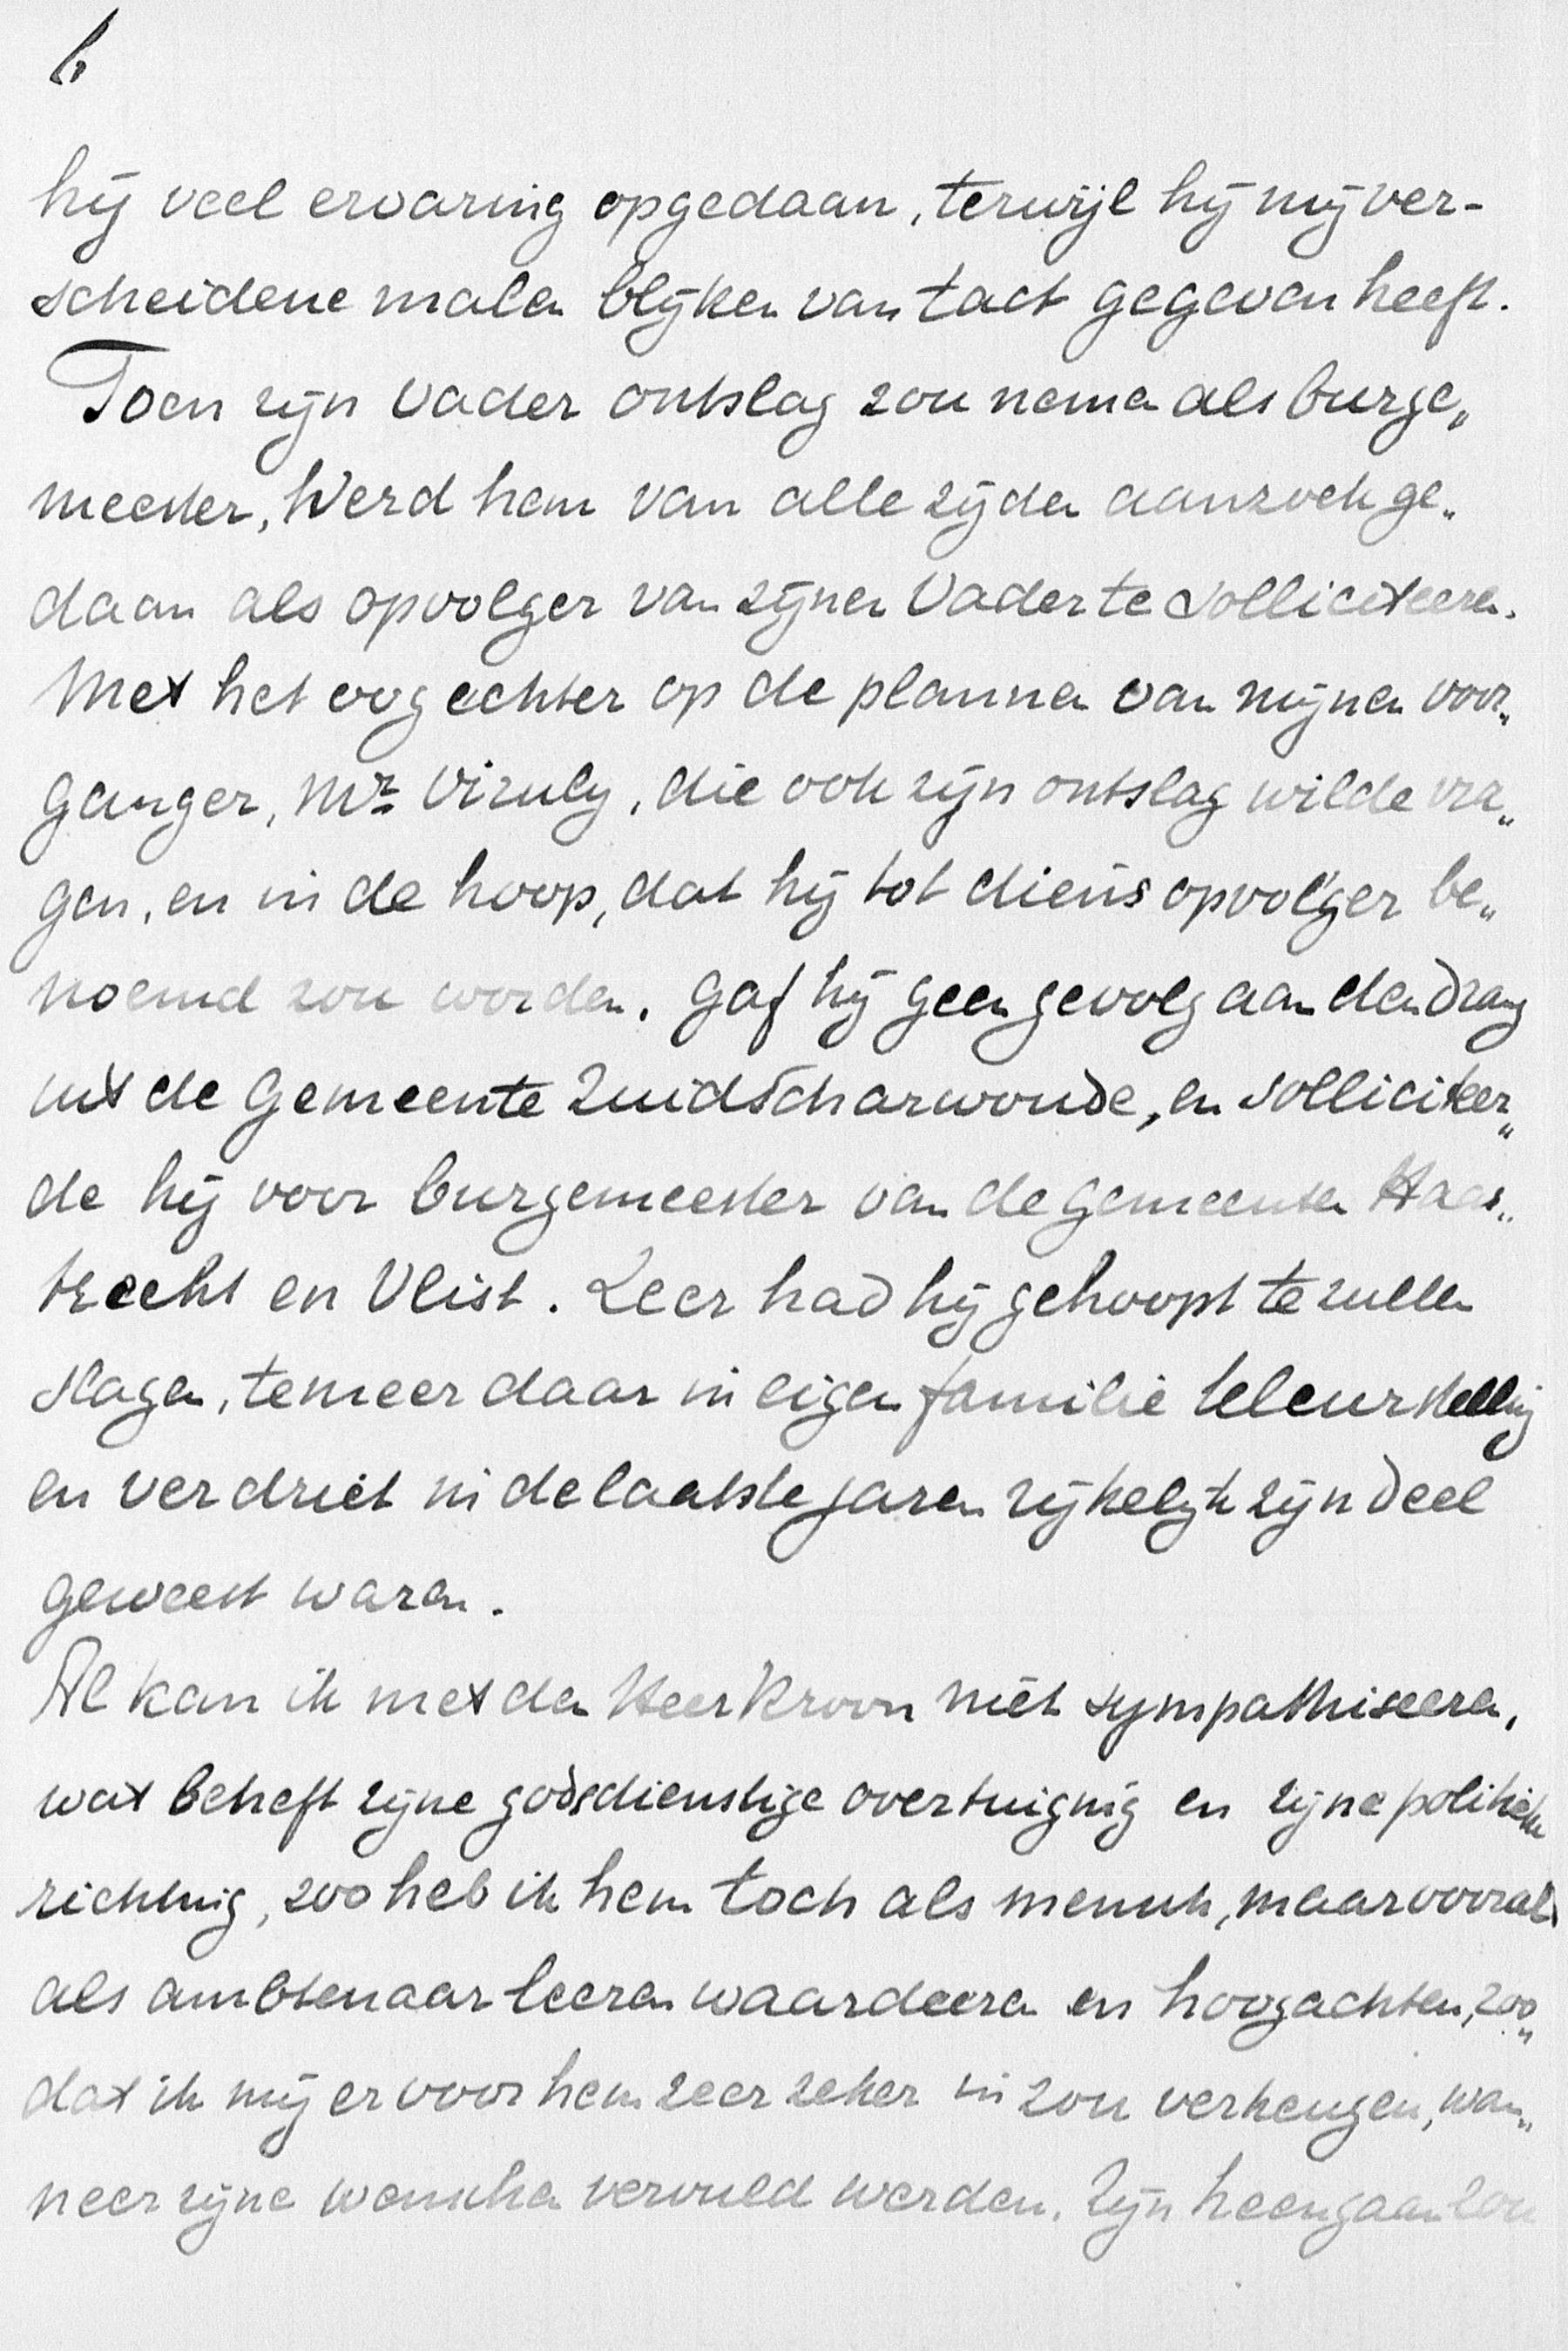 6
hij veel ervaring opgedaan, terwijl hij mij ver-
scheidene malen blijken van tact gegeven heeft.
Toen zijn Vader ontslag zou nemen als burge„
meester, werd hem van alle zijden aanzoek ge„
daan als opvolger van zijnen Vader te solliciteeren.
Met het oog echter op de plannen van mijnen voor„
ganger, Mr. Viruly, die ook zijn ontslag wilde vra„
gen, en in de hoop, dat hij tot diens opvolger be„
noemd zou worden, gaf hij geen gevolg aan den drang
uit de Gemeente Zuidscharwoude, en solliciteer„
de hij voor burgemeester van de gemeenten Haas„
trecht en Vlist. Zeer had hij gehoopt te zullen
slagen, temeer daar in eigen familie teleurstelling
en verdriet in de laatste jaren rijkelijk zijn deel
geweest waren.
Al kan ik met den Heer Kroon niet sympathiseeren,
wat betreft zijne godsdienstige overtuiging en zijne politieke
richting, zoo heb ik hem toch als mensch, maar vooral
als ambtenaar leeren waardeeren en hoogachten, zoo„
dat ik mij er voor hem zeer zeker in zou verheugen, wan„
neer zijne wenschen vervuld werden. Zijn heengaan zou